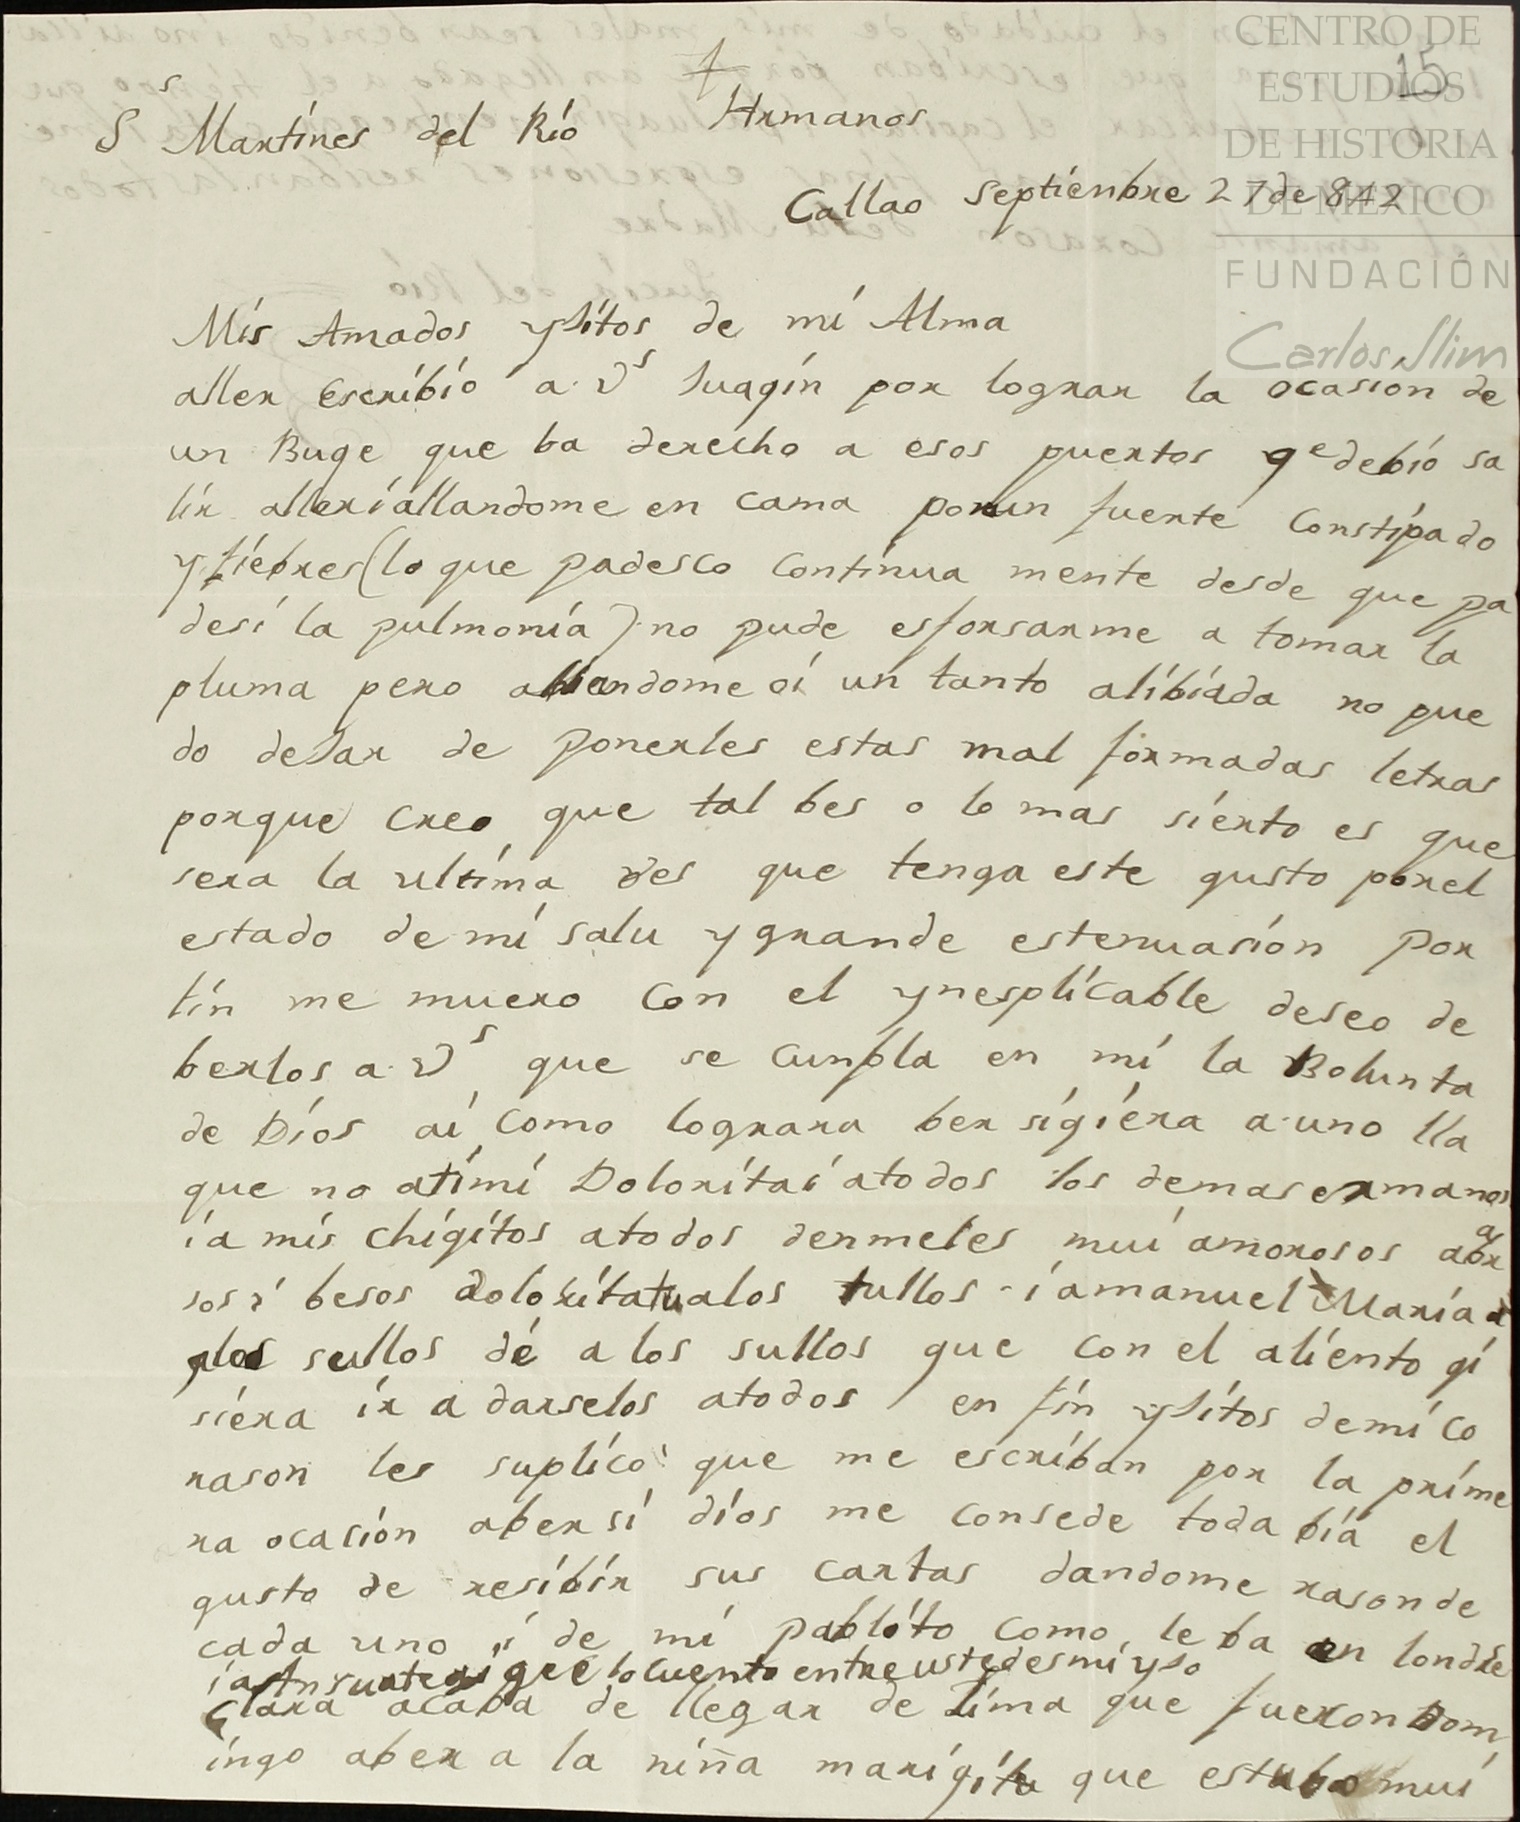 15
CENTRO DE
ESTUDIOS
DE HISTORIA
DE MÉXICO
FUNDACIÓN
Carlos Slim
Ss Martines del Río Hrmanos
Callao septienbre 27 de 842
Mis Amados ysitos de mi Alma
aller escribio a Vs Juaqin por lograr la ocasion de
un Buqe que ba derecho a esos puertos qe debio sa
lir aller i allandome en cama por un fuerte constipado
y fiebres (lo que padesco continua mente desde que pa
desi la pulmonia) no pude esforsarme a tomar la
pluma pero allandome oi un tanto alibiada no pue
do desar de ponerles estas mal formadas letras
porque creo que tal bes o lo mas sierto es que
sera la ultima ves que tenga este gusto por el
estado de mi salu y grande estenuasion por
fin me muero con el ynesplicable deseo de
berlos a Vs que se cunpla en mi la Bolunta
de Dios ai como lograra ber sigiera a uno lla
que no a ti mi Dolorita i a todos los demas ermanos
i a mis chigitos a todos denmeles mui amorosos abra
sos i besos dolorita tu a los tullos i a manuel Maria a
los sullos dé a los sullos que con el aliento gi
siera ir a darselos a todos en fin ysitos de mi co
rason les suplico que me escriban por la prime
ra ocasion aber si dios me consede toda bia el
gusto de resibir sus cartas dandome rason de
cada uno i de mi pablito como le ba en londre
i a que lo cuento entre ustedes mi yso
Clara acaba de llegar de Lima que fueron Dom
ingo aber a la niña marigita que estubo mui